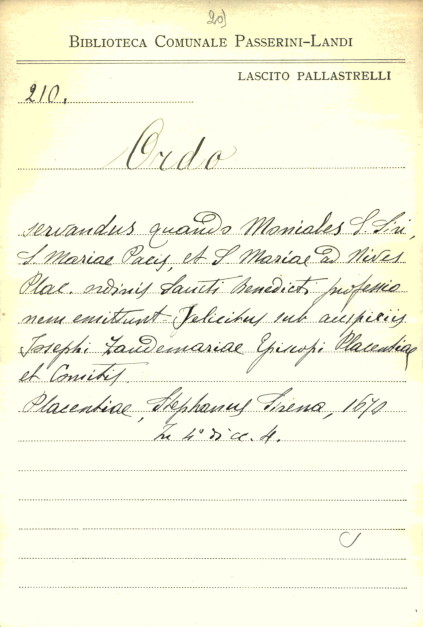 20)
BIBLIOTECA COMUNALE PASSERINI-LANDI
LASCITO PALLASTRELLI
210.
Ordo
servandus quando Moniales S. Siri,
S. Mariae Pacis, et S. Mariae ad Nives
Plac. ordinis Sancti Benedicti professio
nem emittunt - Felicibus sub auspiciis
Josephi Zandemariae Episcopi Placentiae
et Comitis.
Placentiae, Stephanus Sirena, 1670
In 4° di cc. 4.